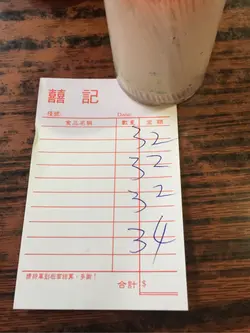 囍記
檯號: Date:
食品名稱 數量 金額
32
32
32
34
合計 $